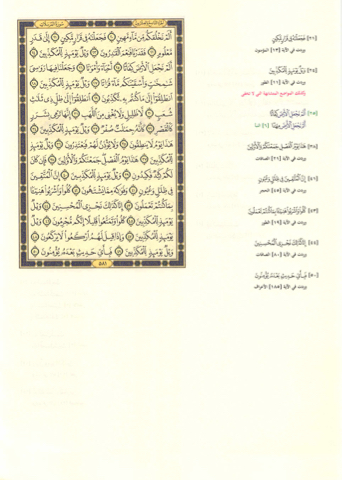 الجزء التاسع والعشرون سورة المرسلات
أَلَمْ نَخْلُقكُّم مِّن مَّاءٍ مَّهِينٍ ٢٠ فَجَعَلْنَاهُ فِي قَرَارٍ مَّكِينٍ ٢١ إِلَىٰ قَدَرٍ
مَّعْلُومٍ ٢٢ فَقَدَرْنَا فَنِعْمَ الْقَادِرُونَ ٢٣ وَيْلٌ يَوْمَئِذٍ لِّلْمُكَذِّبِينَ ٢٤
أَلَمْ نَجْعَلِ الْأَرْضَ كِفَاتًا ٢٥ أَحْيَاءً وَأَمْوَاتًا ٢٦ وَجَعَلْنَا فِيهَا رَوَاسِيَ
شَامِخَاتٍ وَأَسْقَيْنَاكُم مَّاءً فُرَاتًا ٢٧ وَيْلٌ يَوْمَئِذٍ لِّلْمُكَذِّبِينَ ٢٨
انطَلِقُوا إِلَىٰ مَا كُنتُم بِهِ تُكَذِّبُونَ ٢٩ انطَلِقُوا إِلَىٰ ظِلٍّ ذِي ثَلَاثِ
شُعَبٍ ٣٠ لَّا ظَلِيلٍ وَلَا يُغْنِي مِنَ اللَّهَبِ ٣١ إِنَّهَا تَرْمِي بِشَرَرٍ
كَالْقَصْرِ ٣٢ كَأَنَّهُ جِمَالَتٌ صُفْرٌ ٣٣ وَيْلٌ يَوْمَئِذٍ لِّلْمُكَذِّبِينَ ٣٤
هَٰذَا يَوْمُ لَا يَنطِقُونَ ٣٥ وَلَا يُؤْذَنُ لَهُمْ فَيَعْتَذِرُونَ ٣٦ وَيْلٌ يَوْمَئِذٍ لِّلْمُكَذِّبِينَ ٣٧
هَٰذَا يَوْمُ الْفَصْلِ جَمَعْنَاكُمْ وَالْأَوَّلِينَ ٣٨ فَإِن كَانَ
لَكُمْ كَيْدٌ فَكِيدُونِ ٣٩ وَيْلٌ يَوْمَئِذٍ لِّلْمُكَذِّبِينَ ٤٠ إِنَّ الْمُتَّقِينَ
فِي ظِلَالٍ وَعُيُونٍ ٤١ وَفَوَاكِهَ مِمَّا يَشْتَهُونَ ٤٢ كُلُوا وَاشْرَبُوا هَنِيئًا
بِمَا كُنتُمْ تَعْمَلُونَ ٤٣ إِنَّا كَذَٰلِكَ نَجْزِي الْمُحْسِنِينَ ٤٤ وَيْلٌ
يَوْمَئِذٍ لِّلْمُكَذِّبِينَ ٤٥ كُلُوا وَتَمَتَّعُوا قَلِيلًا إِنَّكُم مُّجْرِمُونَ ٤٦ وَيْلٌ
يَوْمَئِذٍ لِّلْمُكَذِّبِينَ ٤٧ وَإِذَا قِيلَ لَهُمُ ارْكَعُوا لَا يَرْكَعُونَ ٤٨
وَيْلٌ يَوْمَئِذٍ لِّلْمُكَذِّبِينَ ٤٩ فَبِأَيِّ حَدِيثٍ بَعْدَهُ يُؤْمِنُونَ ٥٠
٥٨١
[٢١] فَجَعَلْنَاهُ فِي قَرَارٍ مَّكِينٍ
وردت في الآية [١٣] المؤمنون
[٢٤] وَيْلٌ يَوْمَئِذٍ لِّلْمُكَذِّبِينَ
وردت في الآية [١١] الطور
وكذلك المواضع المتشابهة التي لا تخفى
[٢٥] أَلَمْ نَجْعَلِ الْأَرْضَ كِفَاتًا
أَلَمْ نَجْعَلِ الْأَرْضَ مِهَادًا [٦] النبأ
[٣٨] هَٰذَا يَوْمُ الْفَصْلِ جَمَعْنَاكُمْ وَالْأَوَّلِينَ
وردت في الآية [٢١] الصافات
[٤١] إِنَّ الْمُتَّقِينَ فِي ظِلَالٍ وَعُيُونٍ
وردت في الآية [٤٥] الحجر
[٤٣] كُلُوا وَاشْرَبُوا هَنِيئًا بِمَا كُنتُمْ تَعْمَلُونَ
وردت في الآية [١٩] الطور
[٤٤] إِنَّا كَذَٰلِكَ نَجْزِي الْمُحْسِنِينَ
وردت في الآية [٨٠] الصافات
[٥٠] فَبِأَيِّ حَدِيثٍ بَعْدَهُ يُؤْمِنُونَ
وردت في الآية [١٨٥] الأعراف